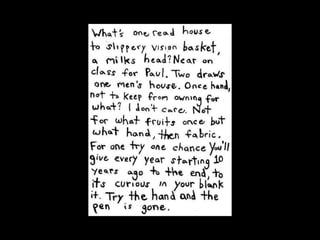 What's one read house
to slippery vision basket,
a milks head? Near on
class for Paul. Two draws
one men's house. Once hand,
not to keep from owning for
what? I don't care. Not
for what fruits once but
what hand, then fabric.
For one try one chance You'll
give every year starting 10
years ago to the end, to
its curious in your blank
it. Try the hand and the
pen is gone.